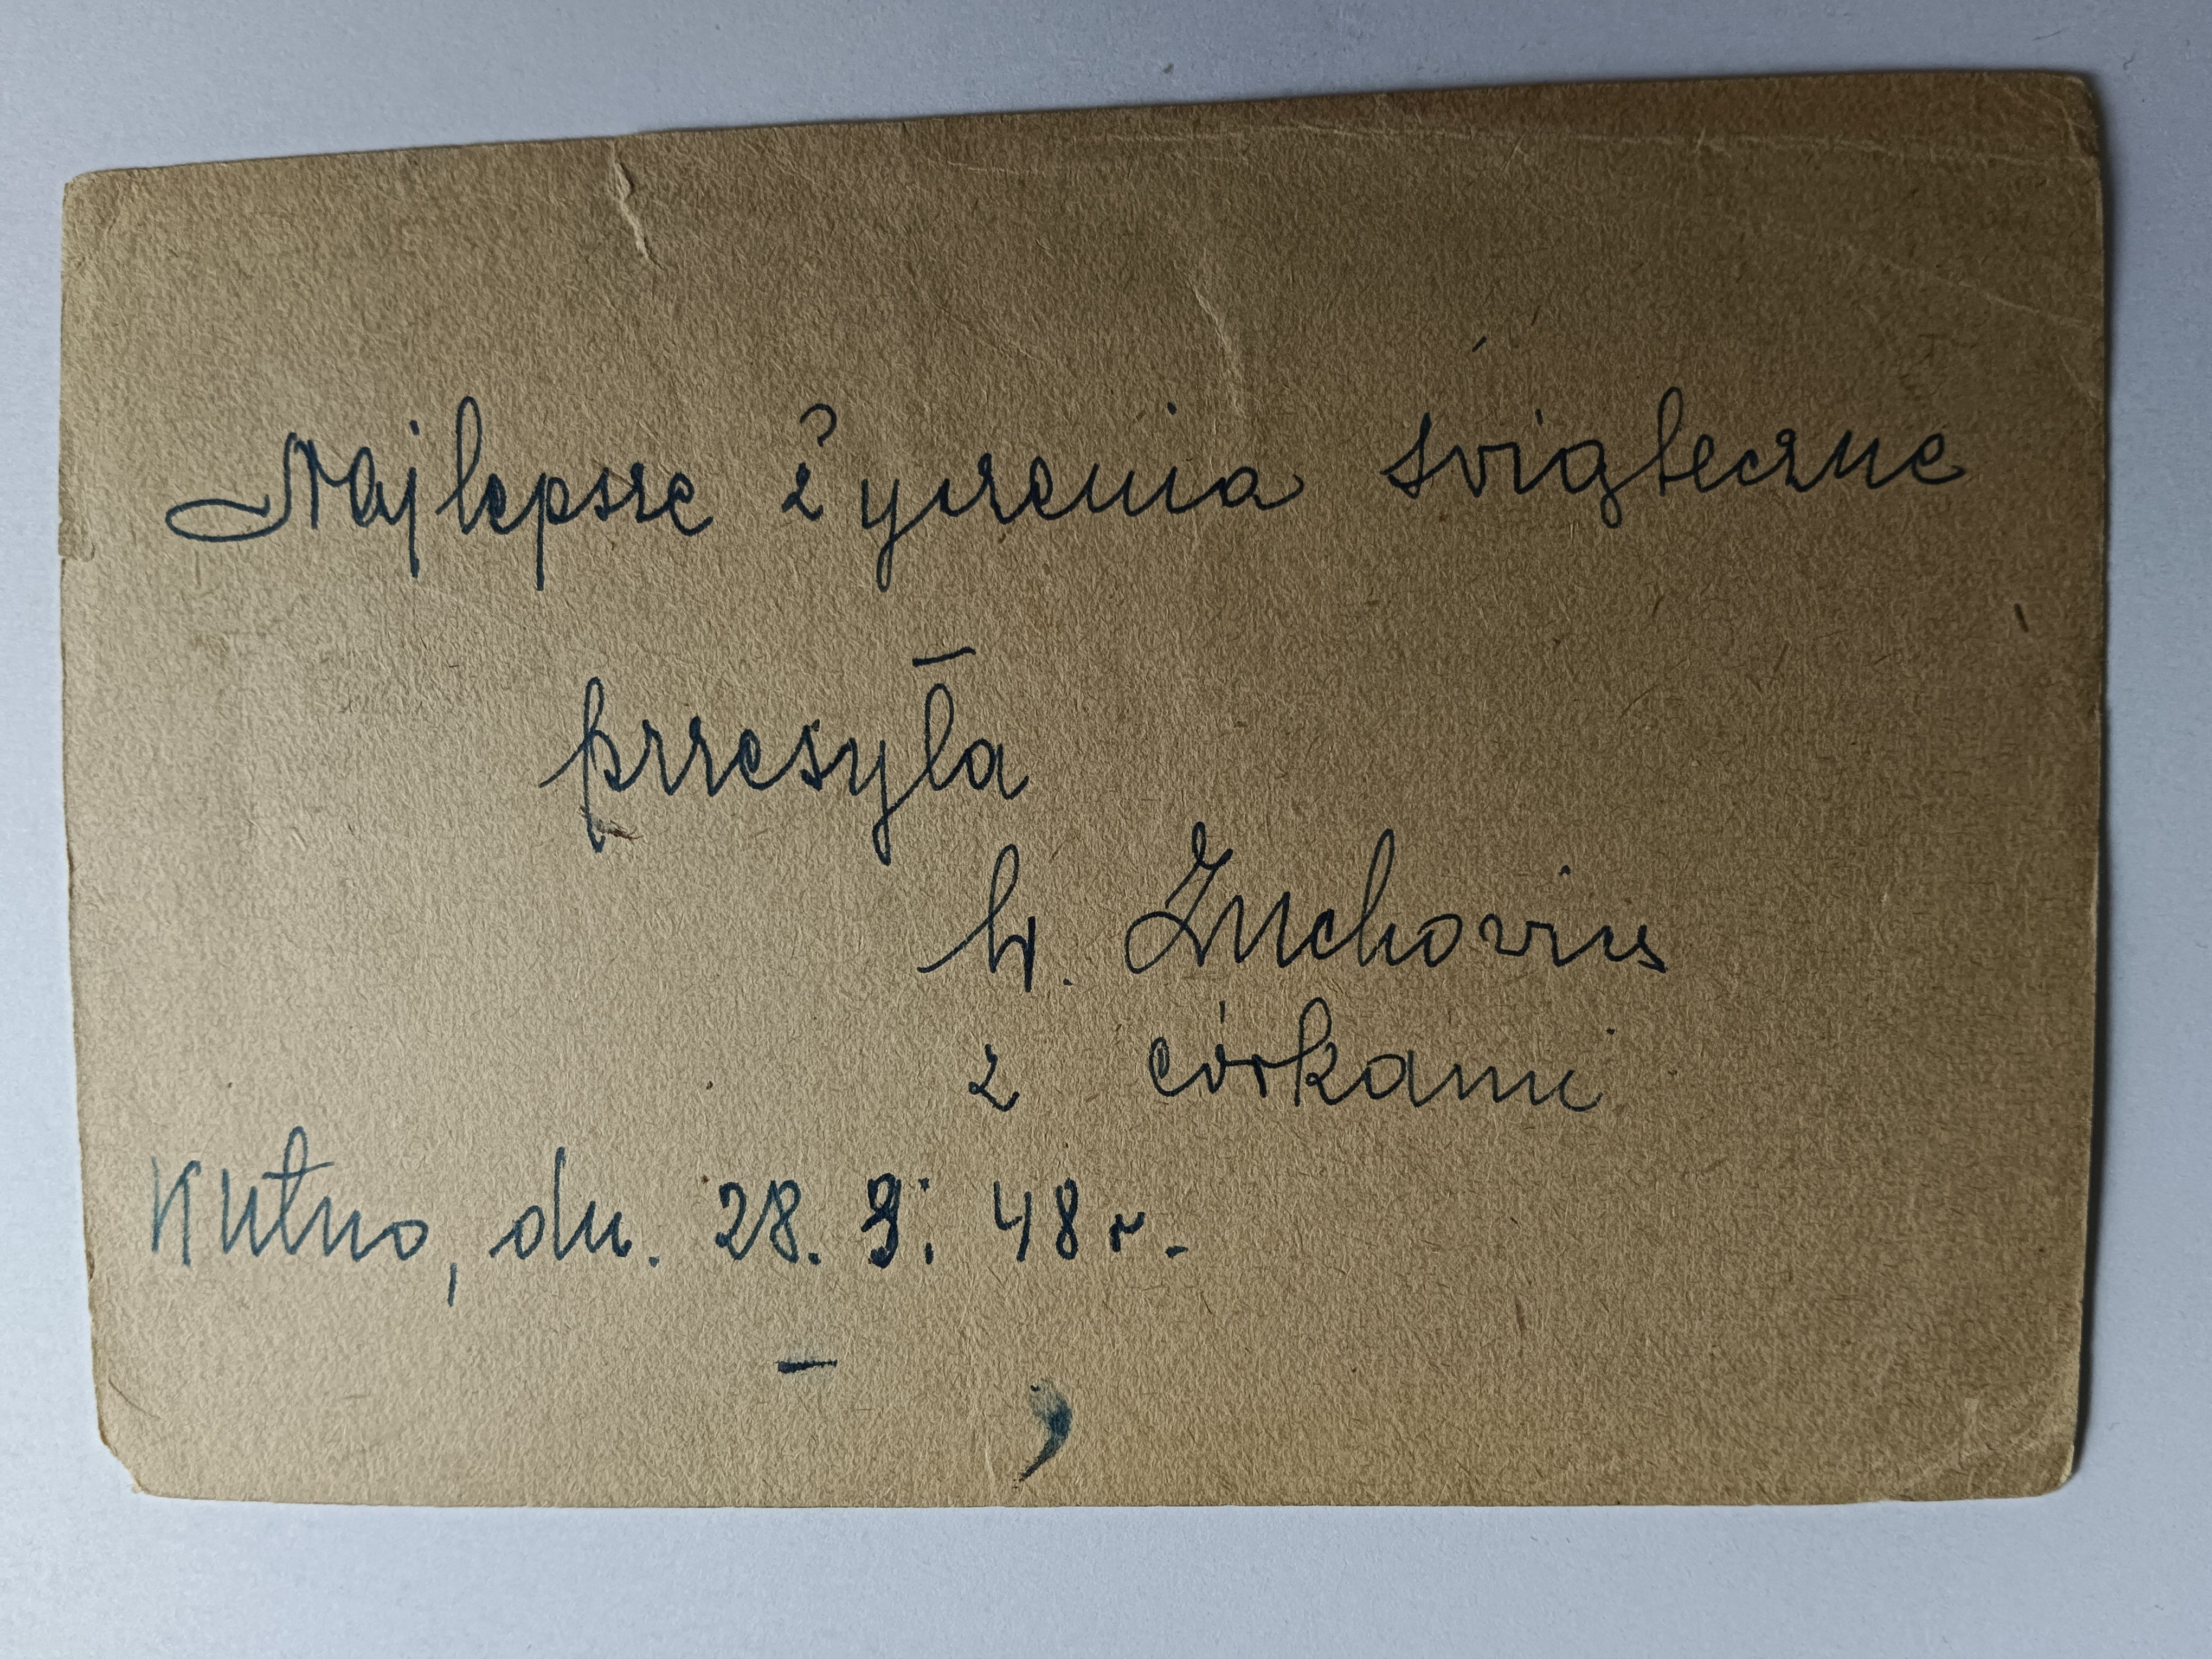 Najlepsze życzenia świąteczne
przesyła
W. Żuchowicz
z córkami
Kutno, dn. 28. 9. 48 r.